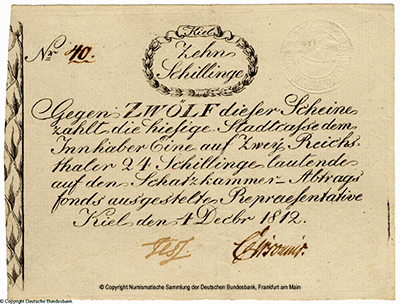 Kiel
Nro 40.
Zehn
Schillinge
Gegen ZWÖLF dieser Scheine
zahlt die hiesige Stadtcasse dem
Innhaber Eine auf Zwey Reichs
thaler 24 Schillinge lautende
auf den Schatzkammer-Abtrags
fonds ausgestellte Repraesentative
Kiel den 4 Decbr 1812.
© Copyright Numismatische Sammlung der Deutschen Bundesbank, Frankfurt am Main
© Copyright Deutsche Bundesbank